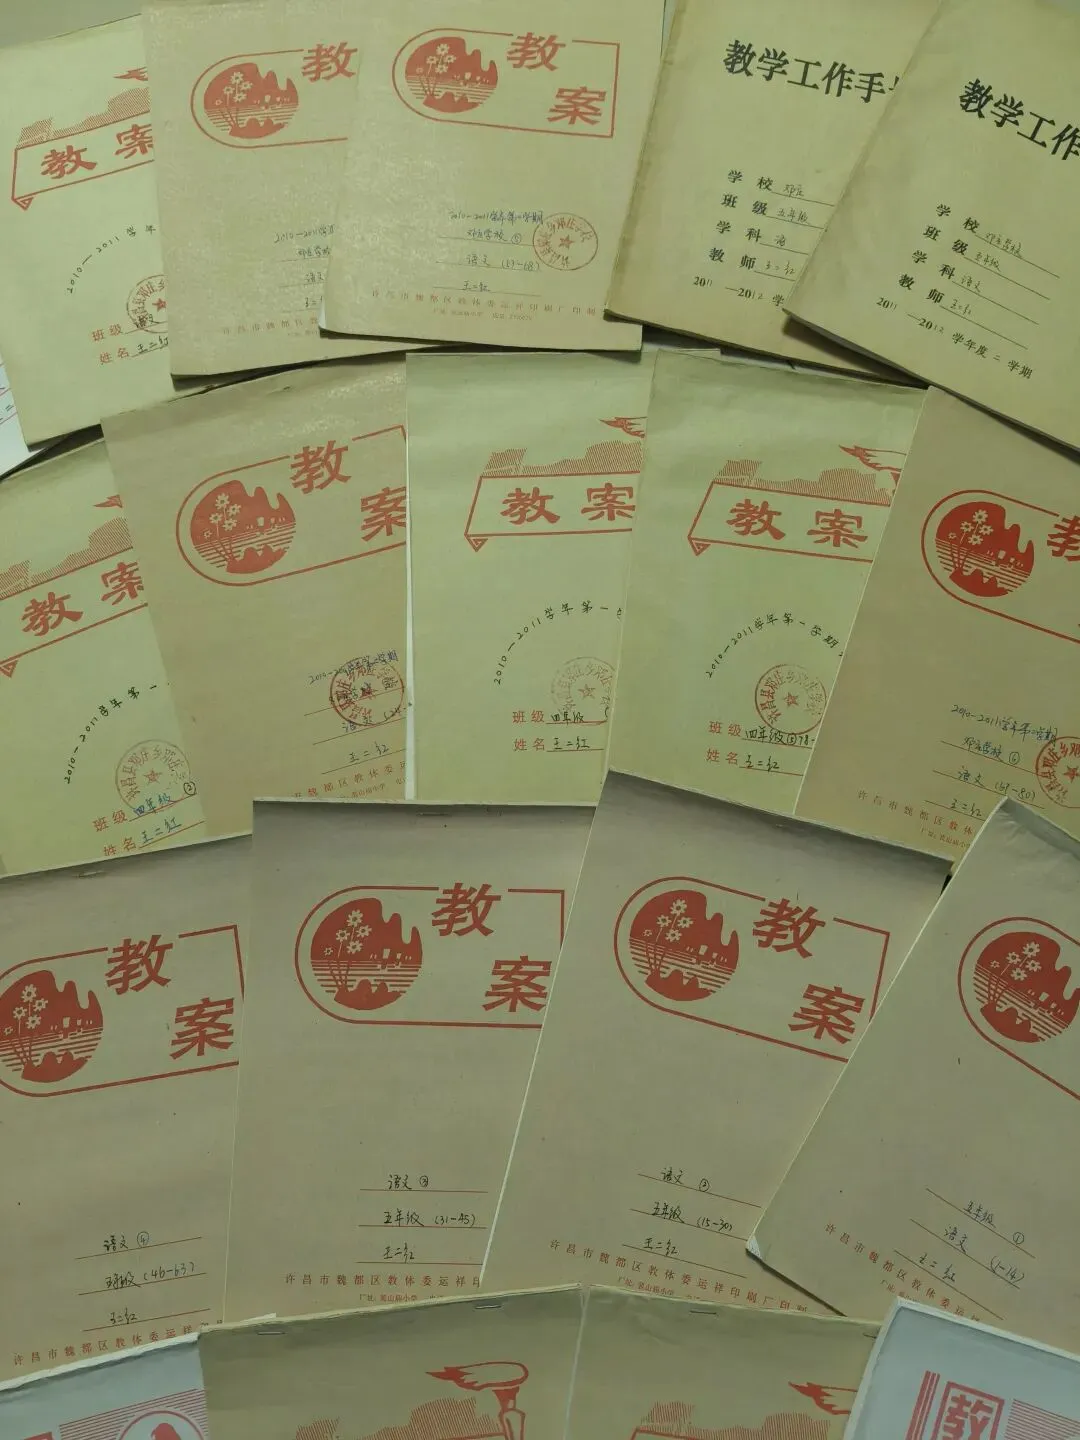 教案
2010—2011学年
班级 语文
姓名 王二红
教
2010—2011学
邓庄学校
语文
王二
教
案
2010—2011学年第二学期
邓庄学校⑤
语文 (53-68)
王二红
许昌市魏都区教体委运祥印刷厂印制
教学工作手
学校 邓庄
班级 五年级
学科 语
教师 王二红
2011—2012学
教学工作
学校 邓庄学校
班级 五年级
学科 语文
教师 王二红
2011—2012学年度二学期
教案
2010—2011学年第一
许昌县邓庄乡邓庄
班级 四年级②
姓名 王二红
教
案
2010—2011学年第二学期
王二红
市魏都区教体委运
教案
2010—2011学年第一
班级 四年级
姓名 王二红
教案
2010—2011学年第一学期
许昌县邓庄乡邓庄学校
班级 四年级⑤78-
姓名 王二红
教
2010—2011学年第二学期
邓庄学校⑥
语文 (69-80)
王二红
许昌市魏都区教体
教
案
语文④
五年级 (46-63)
王二红
许昌市魏都区教体委运祥
教
案
语文③
五年级 (31-45)
王二红
许昌市魏都区教体委运祥印刷厂印
教
案
语文②
五年级 (15-30)
王二红
许昌市魏都区教体委运祥印刷厂印制
五年级①
语文 (1-14)
王二红
许昌市魏都区教体委运祥
教